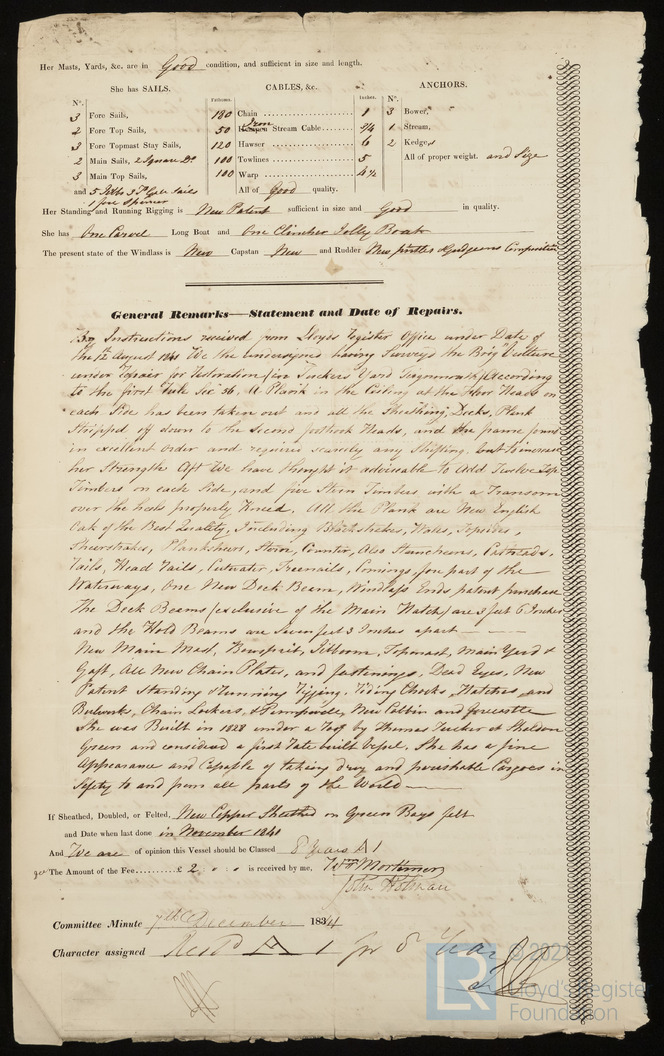 Her Masts, Yards, &c. are in Good condition, and sufficient in size and length.
She has SAILS. CABLES, &c. ANCHORS.
N°. Fathoms. Inches. N°.
3 Fore Sails, 180 Chain 1 3 Bower,
4 Fore Top Sails, 50 Iron Stream Cable 3/4 1 Stream,
3 Fore Topmast Stay Sails, 120 Hawser 6 2 Kedges
2 Main Sails, 2 Square Do 100 Towlines 5 All of proper weight. and Size
3 Main Top Sails, 100 Warp 4 1/2
and 5 Jibbs 3 Sails All of Good quality.
1 fore Spencer
Her Standing and Running Rigging is New Patent sufficient in size and Good in quality.
She has One Carvel Long Boat and One Clincher Jolly Boat
The present state of the Windlass is New Capstan New and Rudder New pintles & Gudgeons Composition
General Remarks—Statement and Date of Repairs.
By Instructions received from Lloyds Register Office under Date of
the 12th August 1841 We the undersigned having Surveyd the Brig Vulture
under Repair for Restoration (in Tuckers Yard Teignmouth) According
to the first Rule Sec 36. A Plank in the Ceiling at the Floor Heads on
each Side has been taken out and all the Sheathing, Decks, Plank
Stripped off down to the Second futtock Heads, and the frame found
in excellent order and required scarcely any Shifting, but to increase
her Strength Aft We have thought it adviseable to Add Twelve Top
Timbers on each Side, and five Stern Timbers with a Transom
over the heels properly Kneed. All the Plank are New English
Oak of the Best Quality, Including Blackstrakes, Wales, Topsides,
Sheerstrakes, Plankshers, Stern, Counter, Also Stancheons, Catheads,
Rails, Head Rails, Cutwater Treenails, Comings, fore part of the
Waterways, One New Deck Beam, Windlass Ends patent purchase
The Deck Beams (exclusive of the Main Hatch) are 3 feet 6 Inches
and the Hold Beams are feet 3 Inches apart
New Main Mast, Bowsprit, Jibboom, Topmast, Main Yard &
Gaft, All New Chain Plates, and fastenings, Dead Eyes, New
Patent Standing & Running Rigging, Riding Chocks, Hatches and
Bulwark, Chain Lockers, & Pumpwell, New Cabbin and forecastle
She was Built in 1828 under a Roof by Thomas Tucker at Sheldon
Green and considered a first rate built Vessel, She has a fine
Appearance and Capable of taking dry and perishable Cargoes in
Safety to and from all parts of the World
If Sheathed, Doubled, or Felted, New Copper Sheathed on Green Bays felt
and Date when last done in November 1841
And We are of opinion this Vessel should be Classed 8 Years A 1
The Amount of the Fee £ 2 is received by me, Wm Mortimer
John Holman
Committee Minute 7th December 1841
Character assigned Restd A 1 for 8 Years
LR © 2021
Lloyd's Register
Foundation